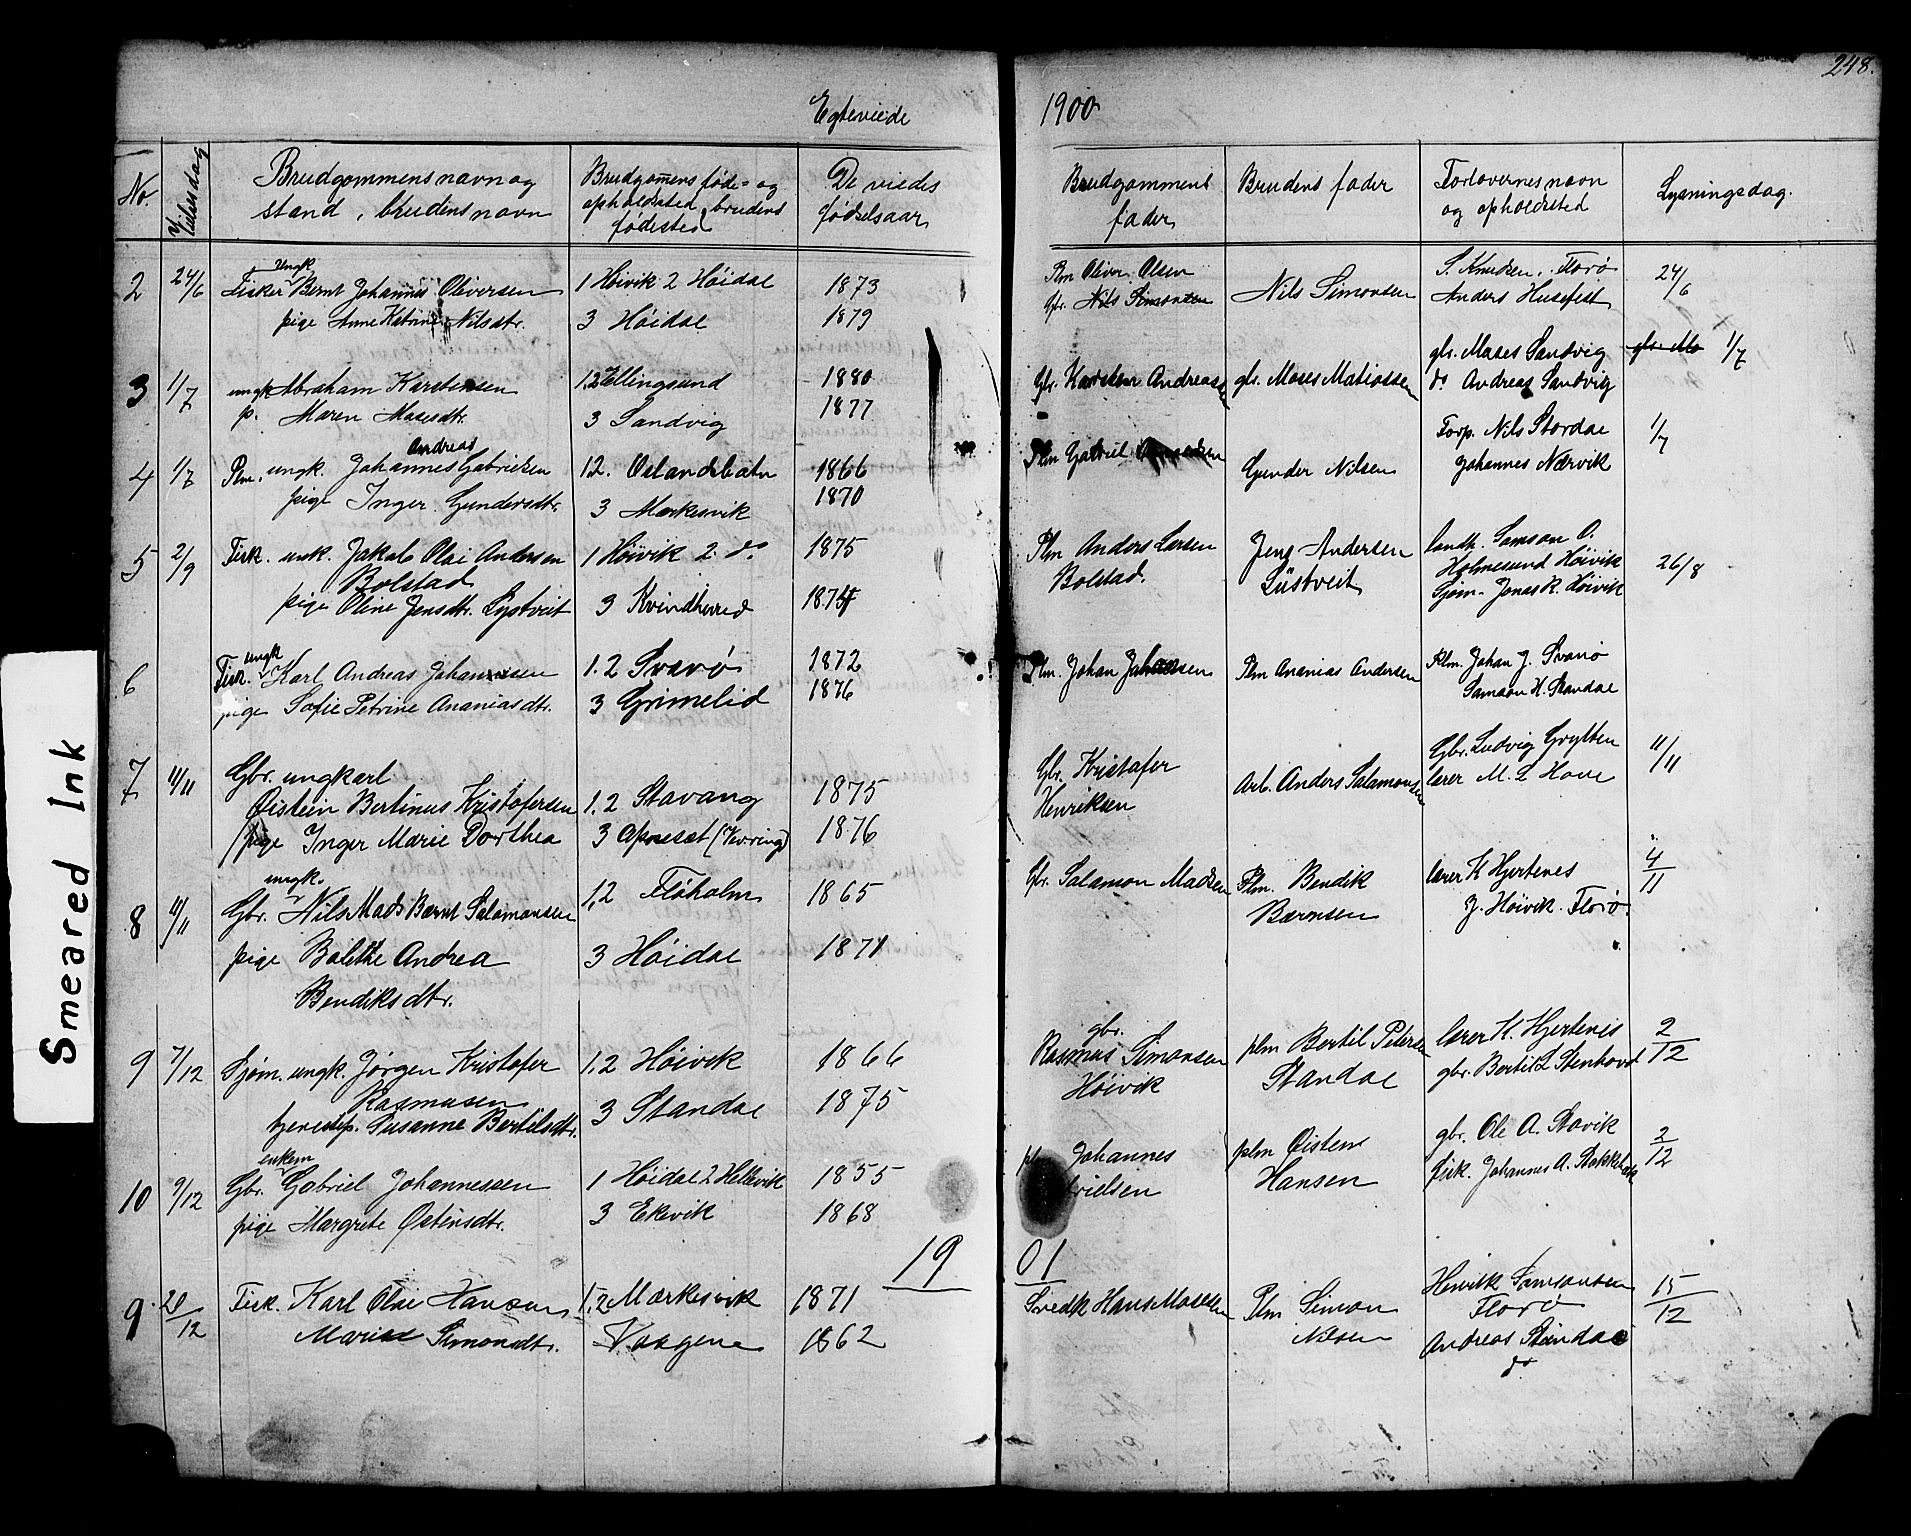 248.
Egteviede 1900
No
Vielsesdag
Brudgommens navn og
stand, brudens navn
Brudgoms føde- og
opholdssted, brudens
fødested
De viedes
fødselsaar
Brudgommens
fader
Brudens fader
Forlovernes navn
og opholdssted
Lysningsdag.
2 24/6 Fisker ungk Bernt Johannes Oliversen 1 Høivik 2 Høidal 1873
pige Anne Katrine Nilsdtr. 3 Høidal 1879
Plm Oliver Olsen Nils Simonsen S. Knudsen, Florø 24/6
Gbr. Nils Simonsen Anders Husefest
3 1/7 ungk Abraham Karstensen 1.2 Ellingsund 1880
p. Maren Mosesdtr. 3 Sandvig 1877
Gbr. Karsten Andreassen gbr. Moses Matiassen gbr. Moses Sandvig gbr. Mo 1/7
do Andreas Sandvig
4 1/7 Plm. ungk. Johannes Andreas Gabrielsen 1.2. Oslandsbotn 1866
pige Inger Gundersdtr. 3 Markesvik 1870
Plm Gabriel Gunder Nilsen Forp. Nils Stordal 1/7
Johannes Nærvik
5 2/9 Fisk. unk. Jakob Olai Andersen 1 Høivik 2. do 1875
Bolstad
pige Oline Jensdtr. Lystveit 3 Kvindherred 1874
Plm Anders Larsen Jens Andersen landh. Samson O.
Bolstad. Lüstveit Holmesund Høivik 26/8
Sjøm. Jonas K. Høivik
6 Fisk. ungk Karl Andreas Johansen 1.2 Svanø 1872
pige Sofie Petrine Ananiasdtr. 3 Grimelid 1876
Plm. Johan Johansen Plm Ananias Andersen Plm. Johan J. Svanø
Samson H. Standal
7 4/11 Gbr. ungkarl
Øistein Bertinus Kristofersen 1.2 Stavang 1875
pige Inger Marie Dorthea 3 Apneset (Vevring) 1876
Gbr. Kristofer Arb. Anders Salamonsen Gbr. Ludvig Grytten 11/11
Henriksen lærer M. L Hove
8 4/11 Gbr. ungk. Nils Mads Bernt Salamonsen 1,2 Floholm 1865
pige Bolethe Andrea 3 Høidal 1871
Bendiksdtr.
Gbr. Salamon Madsen Plm. Bendik lærer K Hjertenes 4/11
Børnsen J. Høivik Florø.
9 7/12 Sjøm. ungk. Jørgen Kristofer 1,2 Høivik 1866
Rasmusen
tjenestep. Susanne Bertilsdtr. 3 Standal 1875
gbr. Rasmus Simonsen plm Bertil Petersen lærer K. Hjertenes 2/12
Høivik Standal gbr. Bertil L Stenhovd
10 9/12 Gbr. enkem Gabriel Johannessen 1 Høidal 2 Hellevik 1855
pige Margrete Østensdtr. 3 Ekevik 1868
Johannes plm Øisten gbr. Ole A. Stavik 2/12
Hansen fisk. Johannes A.
1901
9 20/12 Fisk. Karl Olai Hansen 1,2 Markesvik 1871
Marie Simonsdtr. Vaagene 1862
Hans Mosesen Plm Simon Henrik Samsonsen 15/12
Nilsen Florø
Andreas Standal
do
Smeared Ink